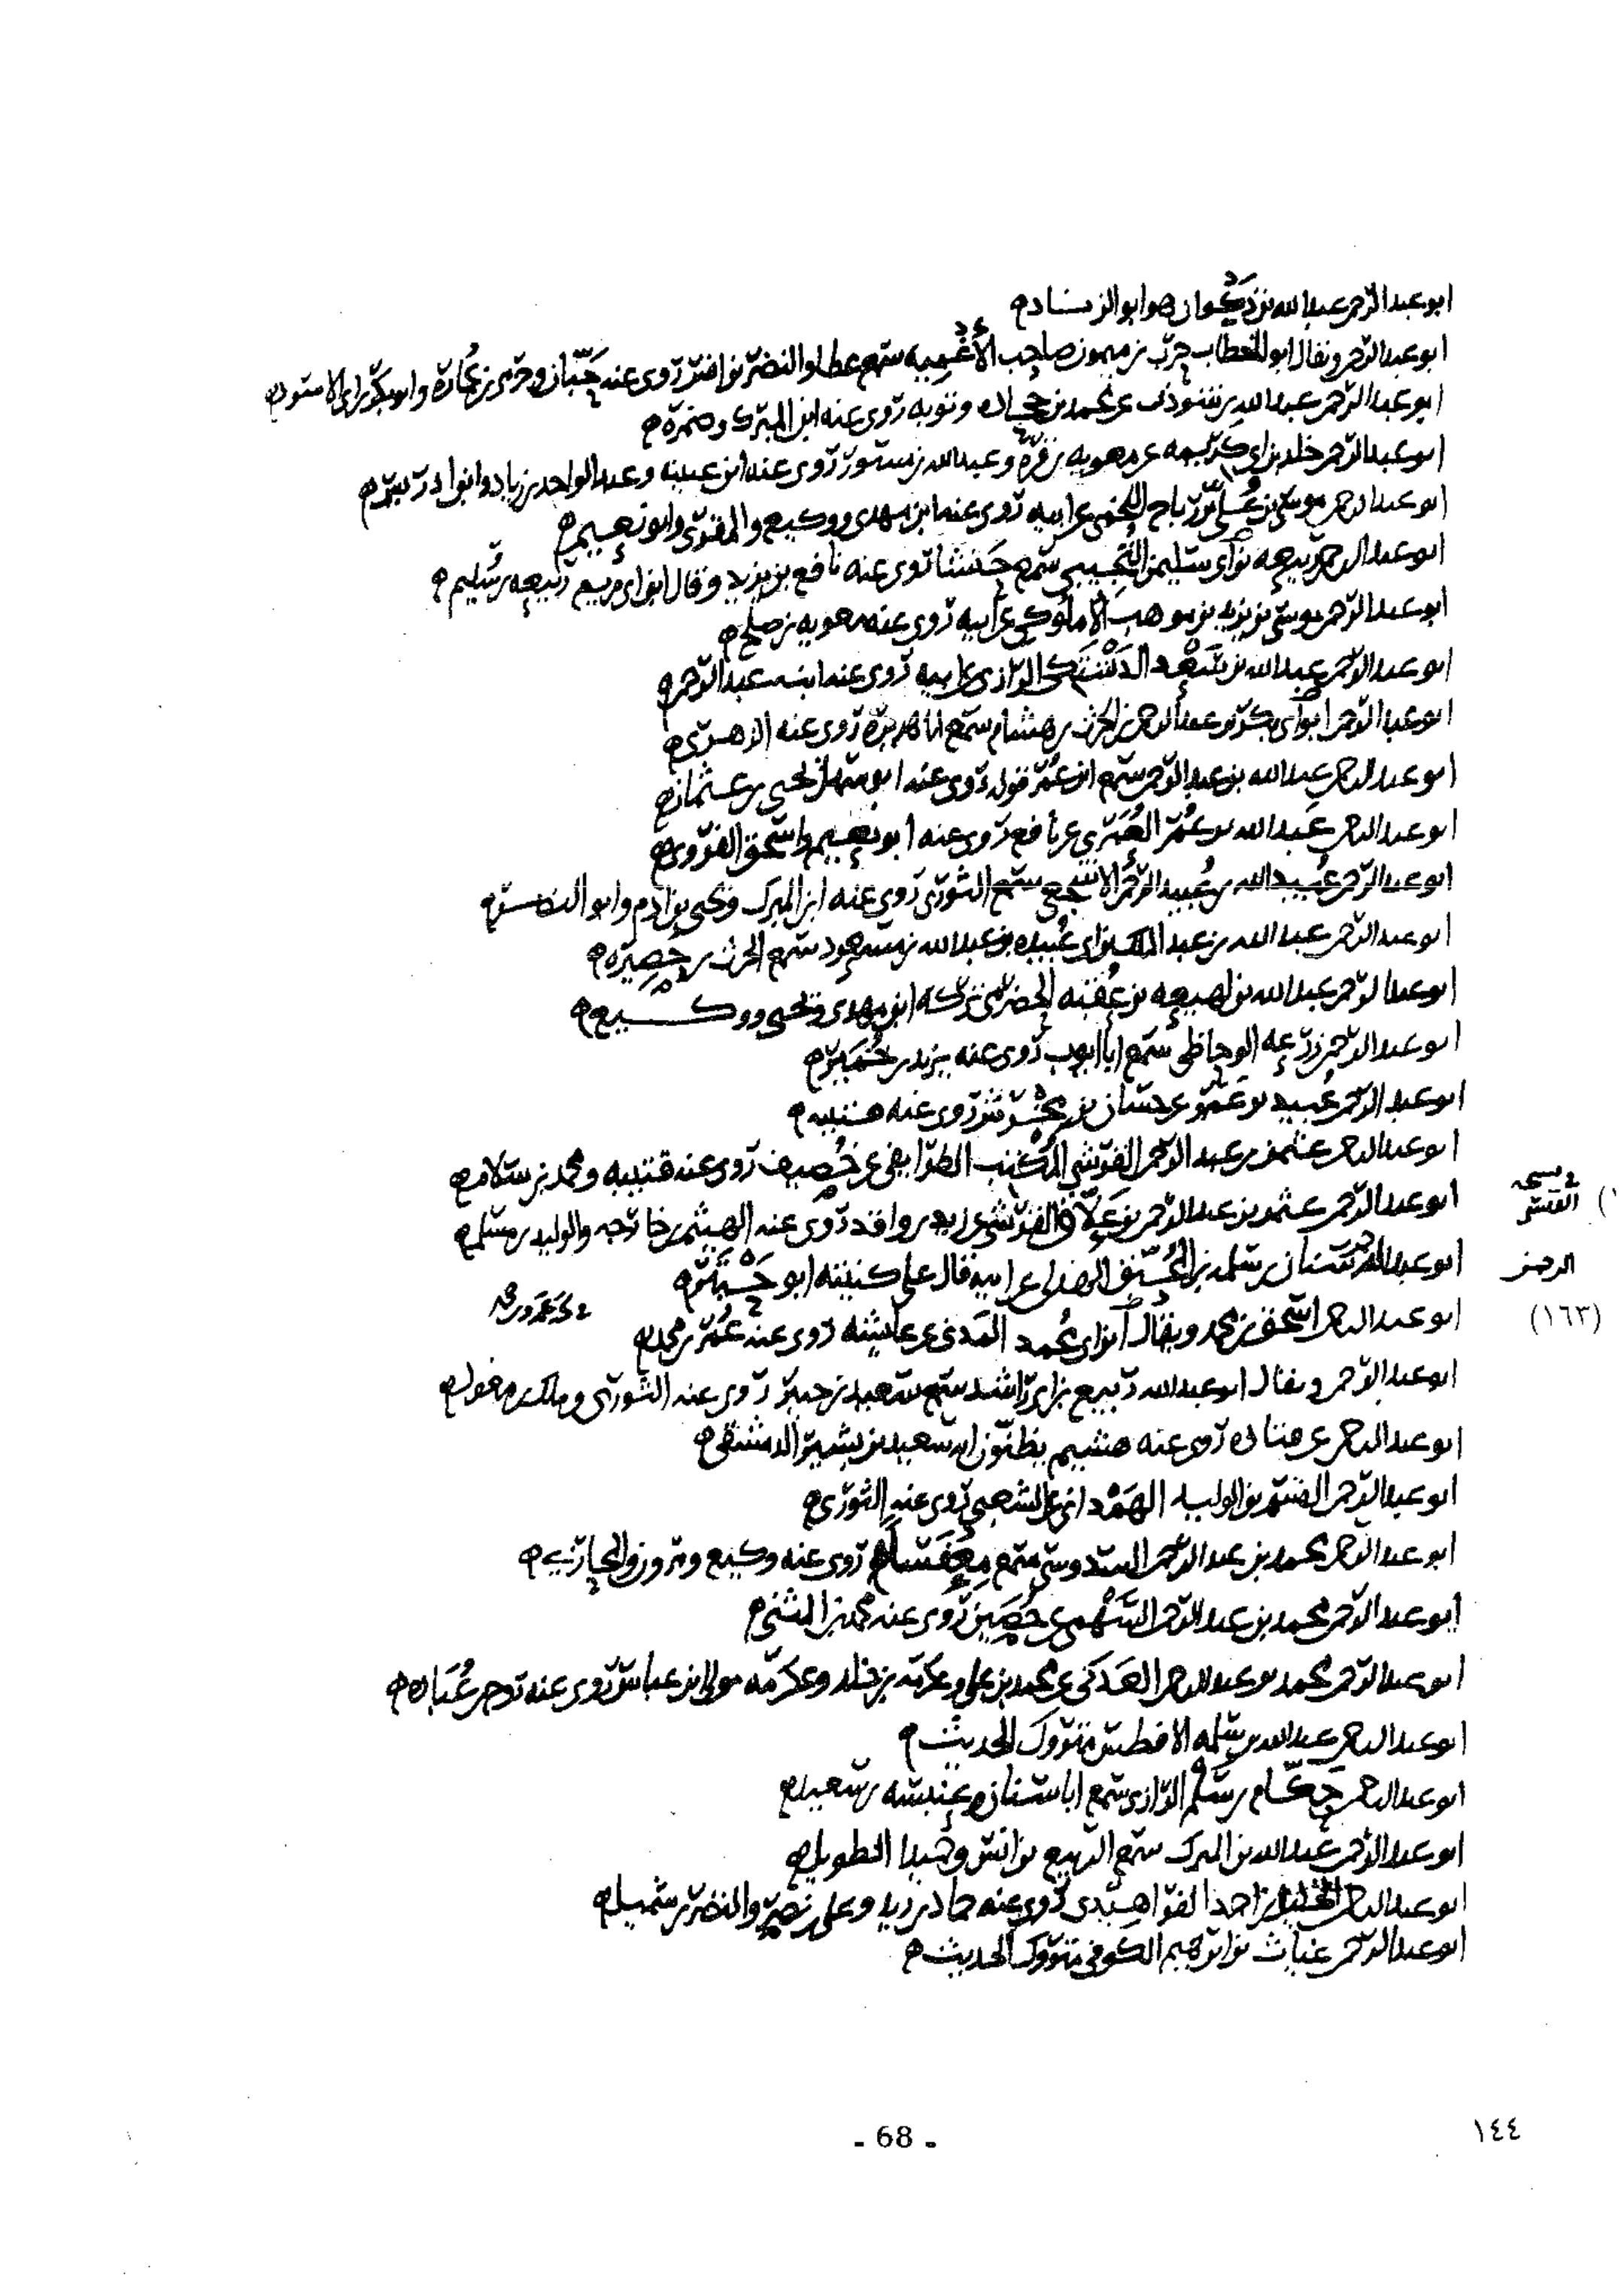 ابو عبد الرحمن عبد الله بن ذكوان هو ابو الزناد
ابو عبد الرحمن ويقال ابو الخطاب حرب بن ميمون صاحب الأغمية سمع عطا والنضر بن انس روى عنه حبان وحرمي بن عمارة وابو بكر بن ابي الاسود
ابو عبد الرحمن عبد الله بن شوذب عن محمد بن جحادة وتوبه روى عنه ابن المبرك وضمرة
ابو عبد الرحمن خلد بن ابي كريمه عن معويه بن قرة وعبد الله بن مسور روى عنه ابن عيينه وعبد الواحد بن زياد وابن ادريس
ابو عبد الرحمن موسى بن علي بن رباح اللخمي عن ابيه روى عنه ابن مهدي ووكيع والمقرئ وابو نعيم
ابو عبد الرحمن ربيعه بن ابي سليمن التجيبي سمع حنشا روى عنه نافع بن يزيد وقال ابن ابي مريم ربيعه بن سليم
ابو عبد الرحمن موسى بن يزيد بن موهب الاملوكي عن ابيه روى عنه معويه بن صلح
ابو عبد الرحمن عبد الله بن سعد الدشتكي الرازي عن ابيه روى عنه ابنه عبد الرحمن
ابو عبد الرحمن ابو بكر بن عبد الرحمن بن الحرث بن هشام سمع ابا هريرة روى عنه الزهري
ابو عبد الرحمن عبد الله بن عبد الرحمن سمع ابن عمر قوله روى عنه ابو سهل يحيى بن عثمان
ابو عبد الرحمن عبد الله بن عمر العمري عن نافع روى عنه ابو نعيم واسحق الفروي
ابو عبد الرحمن عبيد الله بن عبيد الرحمن الاشجعي سمع الثوري روى عنه ابن المبرك ويحيى بن ادم وابو النضر
ابو عبد الرحمن عبد الله بن عبد الملك بن ابي عبيده بن عبد الله بن مسعود سمع الحرث بن حصيرة
ابو عبد الرحمن عبد الله بن لهيعه بن عقبه الحضرمي تركه ابن مهدي ويحيى ووكيع
ابو عبد الرحمن زرعه الوحاظي سمع ابا ايوب روى عنه يزيد بن خمير
ابو عبد الرحمن عبيد بن عمرو عن حسان بن روى عنه
ابو عبد الرحمن عثمن بن عبد الرحمن القرشي المكتب الطرايفي عن خصيف روى عنه قتيبه ومحمد بن سلام
ابو عبد الرحمن عثمن بن عبد الرحمن بن علاق القرشي عن زيد بن واقد روى عنه الهيثم بن خارجه والوليد بن مسلم
في نسخه
القسر
ابو عبد الرحمن سنان بن سلمه بن المحبق الهذلي عن ابيه قال علي كنيته ابو
الرحمن
ابو عبد الرحمن اسحق بن محمد ويقال ابن ابي محمد المدني عن عايشه روى عنه عمر بن محمد
(١٦٣)
ابو عبد الرحمن ويقال ابو عبد الله ربيع بن ابي راشد سمع سعيد بن جبير روى عنه الثوري وملك بن مغول
ابو عبد الرحمن عن قتاده روى عنه هشيم يظنون انه سعيد بن بشير الدمشقي
ابو عبد الرحمن القسم بن الوليد الهمداني عن الشعبي روى عنه الثوري
ابو عبد الرحمن محمد بن عبد الرحمن السدوسي سمع روى عنه وكيع ومرون والمحاربي
ابو عبد الرحمن محمد بن عبد الرحمن السهمي عن حصين روى عنه محمد بن المثنى
ابو عبد الرحمن محمد بن عبد الرحمن العدكي عن محمد بن علي وعكرمه بن خلد وعكرمه مولى ابن عباس روى عنه روح بن عباده
ابو عبد الرحمن عبد الله بن سلمه الافطس متروك الحديث
ابو عبد الرحمن حكام بن سلم الرازي سمع ابا سنان وعنبسه بن سعيد
ابو عبد الرحمن عبد الله بن المبرك سمع الربيع بن انس وحميدا الطويل
ابو عبد الرحمن الخليل بن احمد الفراهيدي روى عنه حماد بن زيد وعلي بن نصر والنضر بن شميل
ابو عبد الرحمن غياث بن ابرهيم الكوفي متروك الحديث
- 68 -
١٤٤